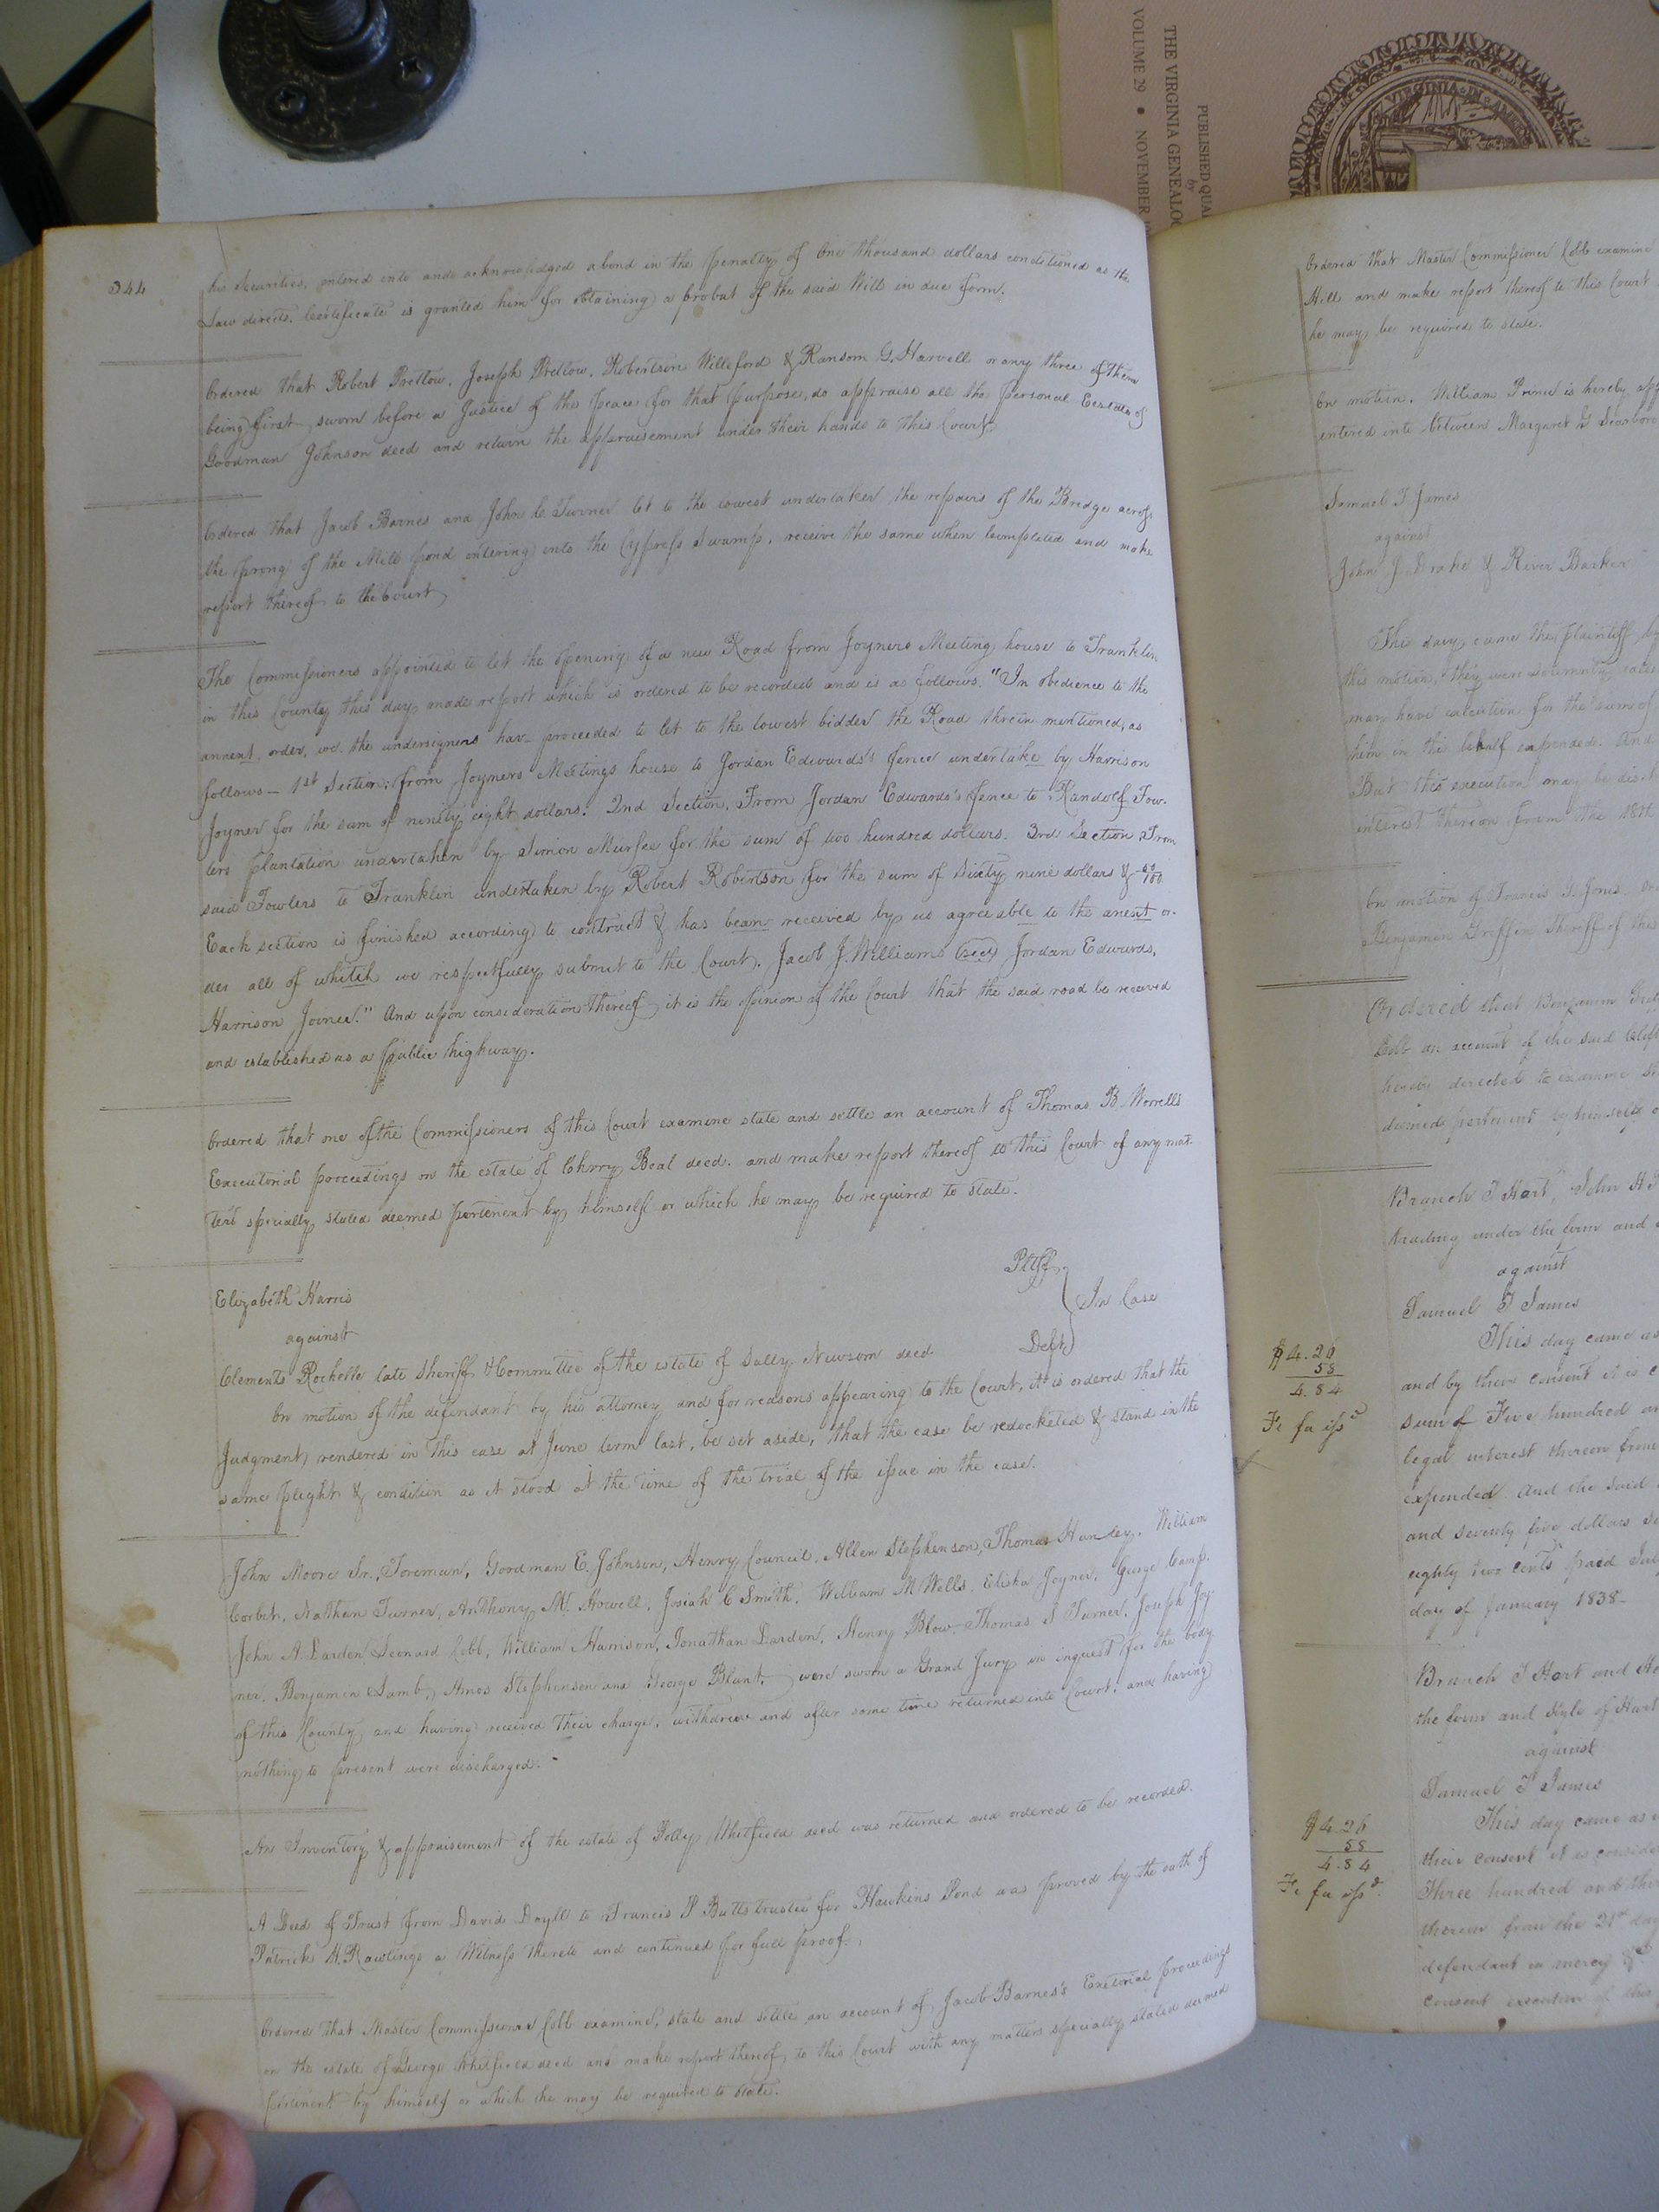 THE VIRGINIA GENEALO
VOLUME 29 • NOVEMBER
PUBLISHED QUA
by
VIRGINIA · IN · AM
344
his securities, entered into and acknowledged a bond in the penalty of One thousand dollars conditioned as the
Law directs. Certificate is granted him for obtaining a probat of the said Will in due form.
Ordered that Robert Pretlow, Joseph Pretlow, Robertson Williford & Ransom G. Harvell or any three of them
being first sworn before a Justice of the peace for that purpose, do appraise all the personal Estate of
Goodman Johnson deed and return the appraisement under their hands to this Court.
Ordered that Jacob Barnes and John C Turner let to the lowest undertaker the repairs of the Bridge across
the prong of the Mill pond entering into the Cypress Swamp, receive the same when completed and make
report thereof to the Court
The Commissioners appointed to let the opening of a new Road from Joyners Meeting house to Franklin
in this County this day made report which is ordered to be recorded and is as follows. "In obedience to the
annent order, we the undersigners hav proceeded to let to the lowest bidder the Road threin mentioned, as
follows— 1st Section; from Joyners Meetings house to Jordan Edwards's fence undertake by Harrison
Joyner for the sum of ninety eight dollars. 2nd Section, From Jordan Edwards's fence to Randolf Fow-
lers plantation undertaken by Simon Murfee for the sum of two hundred dollars. 3rd Section From
said Fowlers to Franklin undertaken by Robert Robertson for the sum of Sixty nine dollars & 50/100
Each section is finished according to contract & has bean received by us agreeable to the anent or-
der all of whitch we respectfully submit to the Court. Jacob J. Williams (seal) Jordan Edwards,
Harrison Joiner." And upon consideration thereof it is the opinion of the Court that the said road be received
and established as a public highway.
Ordered that one of the Commissioners of this Court examine state and settle an account of Thomas B. Worrells
Executorial proceedings on the estate of Chrry Beal deed. and make report thereof to this Court of any mat-
ters specially stated deemed pertenent by himself or which he may be required to state.
Elizabeth Harris Pltff
against } In Case
Clements Rochelle late Sheriff & Committee of the estate of Sally Newsom deed Deft
On motion of the defendant by his attorney and for reasons appearing to the Court, it is ordered that the
Judgment rendered in this case at June term last, be set aside, that the case be redocketed & stand in the
same plight & condition as it stood at the time of the trial of the issue in the case.
John Moore Sr., Foreman, Goodman E. Johnson, Henry Council, Allen Stephenson, Thomas Hundey, William
Corbet, Nathan Turner, Anthony W. Howell, Josiah C Smith, William M Wells, Elisha Joyner, George Camp,
John A. Darden Leonard Cobb, William Harrison, Jonathan Darden, Henry Blow, Thomas J Turner, Joseph Joy
ner, Benjamin Lamb, Amos Stephenson and George Blunt, were sworn a Grand Jury an inquest for the body
of this County and having received their charge, withdrew and after some time returned into Court, and having
nothing to present were discharged.
An Inventory & appraisement of the estate of Polly Whitfield deed was returned and ordered to be recorded.
A Deed of Trust from David Doyll to Francis P Butts trustee for Hawkins Pond was proved by the oath of
Patrick H. Rawlings a Witness thereto and continued for full proof.
Ordered that Master Commissioner Cobb examine, state and settle an account of Jacob Barnes's Exetorial proceedings
on the estate of George Whitfield deed and make report thereof to this Court with any matters specially stated deemed
pertenent by himself or which he may be required to state.
Ordered that Master Commissioner Cobb examine
Hill and make report thereof to this Court
he may be required to state.
On motion, William Prince is hereby app
entered into between Margaret G Scarbor
Samuel T James
against
John J Drake & River Barker
This day came the plaintiff by
this motion, they were solemnly called
may have execution for the sum of
him in this behalf expended. And
But this execution may be disch
interest thereon from the 18th
On motion of Francis G. Jones,
Benjamin Griffin Sheriff of this
Ordered that Benjamin
Cobb an account of the said
hereby directed to examine
deemed pertinent by himself o
Branch T Hart, John H
trading under the firm and
against
Samuel T James
This day came as
$4.26
58
4.84
Fi fa issd
and by their consent it is c
sum of Five hundred an
legal interest thereon from
expended. And the said
and seventy five dollars
eighty two cents paid
day of January 1838—
Branch T Hart and
the firm and style of Hart
against
Samuel T James
This day came as
$4.26
58
4.84
Fi fa issd.
their consent it is conside
Three hundred and thir
thereon from the 21st day
defendant in mercy &c
consent execution of this